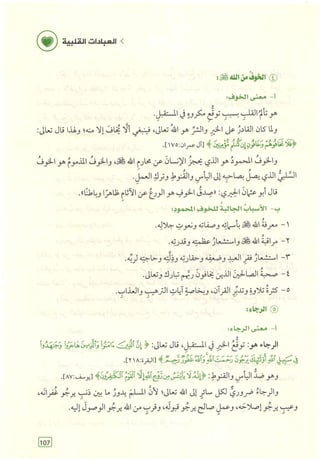 العبادات القلبية
④ الخوف من الله ﷻ:
أ- معنى الخوف:
هو تألم القلب بسبب توقع مكروه في المستقبل.
ولما كان القادر على الخير والشر هو الله تعالى، فينبغي ألا تخاف إلا منه؛ ولهذا قال تعالى:
﴿فَلَا تَخَافُوهُمْ وَخَافُونِ إِن كُنتُم مُّؤْمِنِينَ﴾ [آل عمران: ١٧٥].
والخوف المحمود هو الذي يحجز الإنسان عن محارم الله ﷻ، والخوف المذموم هو الخوف
السلبي الذي يصل بصاحبه إلى اليأس والقنوط وترك العمل.
قال أبو عثمان الحيري: «صدق الخوف هو الورع عن الآثام ظاهرًا وباطنًا».
ب- الأسباب الجالبة للخوف المحمود:
١- معرفة الله ﷻ بأسمائه ونعوت جلاله.
٢- مراقبة الله ﷻ واستشعار عظمته وقدرته.
٣- استشعار فقر العبد وضعفه وذله وحاجته لربه.
٤- صحبة الصالحين الذين يخافون ربهم تبارك وتعالى.
٥- كثرة تلاوة وتدبر القرآن، وبخاصة آيات الترهيب والعذاب.
⑤ الرجاء:
أ- معنى الرجاء:
الرجاء هو: توقع الخير في المستقبل، قال تعالى: ﴿إِنَّ الَّذِينَ ءَامَنُوا وَالَّذِينَ هَاجَرُوا وَجَاهَدُوا
فِي سَبِيلِ اللَّهِ أُولَٰئِكَ يَرْجُونَ رَحْمَتَ اللَّهِ وَاللَّهُ غَفُورٌ رَّحِيمٌ﴾ [البقرة: ٢١٨].
وهو ضد اليأس والقنوط: ﴿إِنَّهُ لَا يَيْأَسُ مِن رَّوْحِ اللَّهِ إِلَّا الْقَوْمُ الْكَافِرُونَ﴾ [يوسف: ٨٧].
والرجاء ضروري لكل سائر إلى الله تعالى؛ لأن المسلم يدور ما بين ذنب يرجو غفرانه،
وعيب يرجو إصلاحه، وعمل صالح يرجو قبوله، وقرب من الله يرجو الوصول إليه.
107